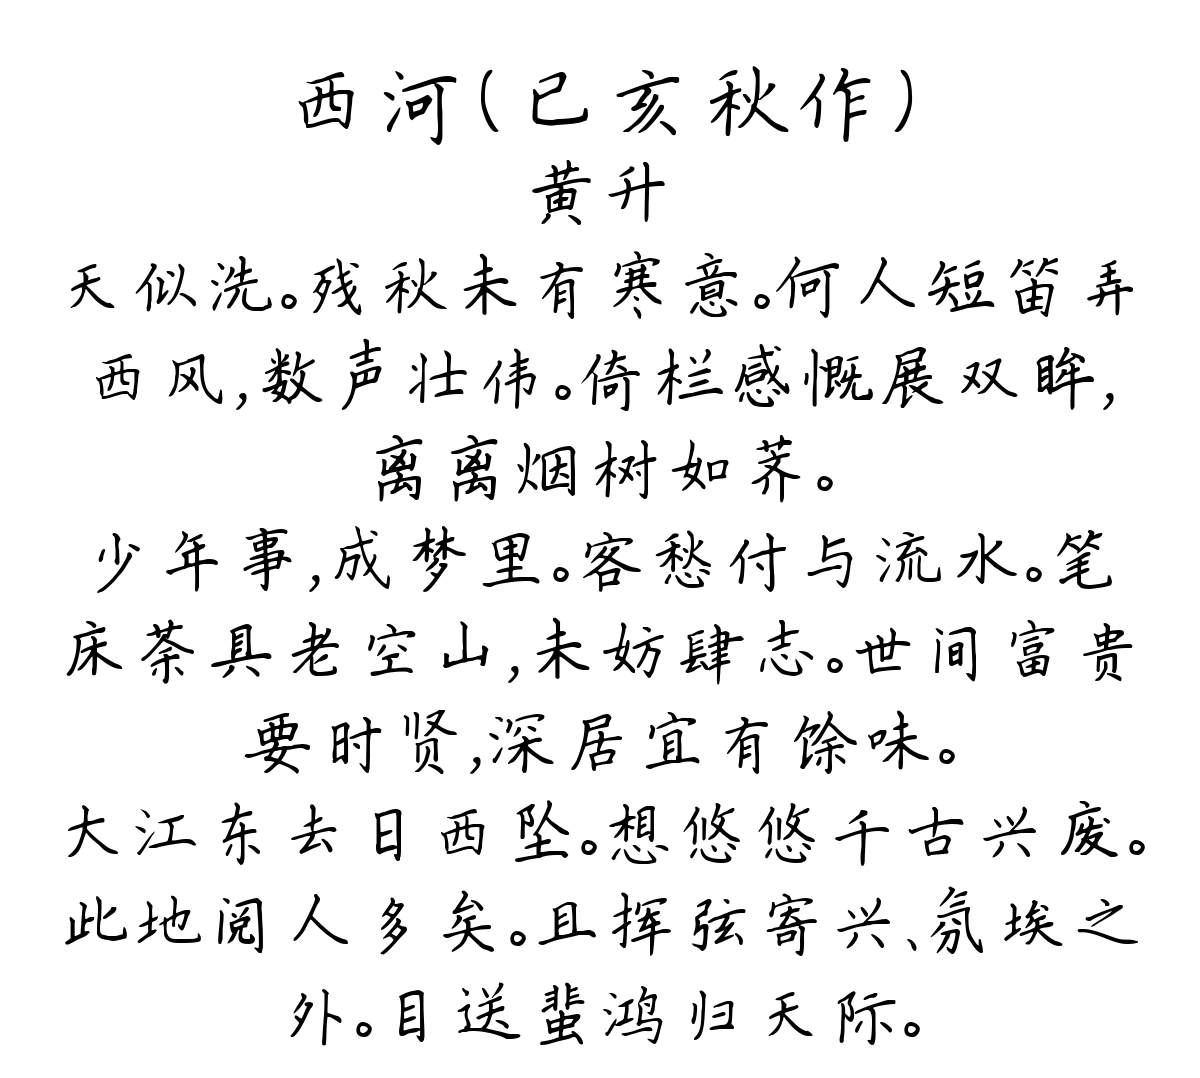 西河(已亥秋作)
黄升
天似洗。残秋未有寒意。何人短笛弄
西风,数声壮伟。倚栏感慨展双眸,
离离烟树如荠。
少年事,成梦里。客愁付与流水。笔
床茶具老空山,未妨肆志。世间富贵
要时贤,深居宜有馀味。
大江东去日西坠。想悠悠千古兴废。
此地阅人多矣。且挥弦寄兴、氛埃之
外。目送蜚鸿归天际。